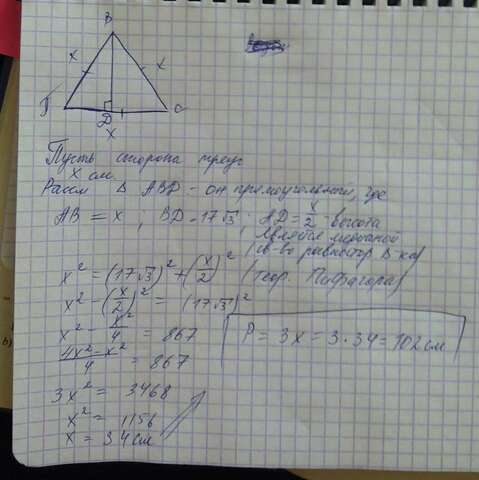 B
x
x
C
D
x
Пусть сторона треуг
x см.
Рассм △ ABD - он прямоугольный, где
AB = x ; BD = 17√3 ; AD = x/2 - высота
является медианой
(св-во равностор △-ка)
x² = (17√3)² + (x/2)² (теор. Пифагора)
x² - (x/2)² = (17√3)²
x² - x²/4 = 867
(4x² - x²)/4 = 867
3x² = 3468
x² = 1156
x = 34 см
P = 3x = 3·34 = 102 см